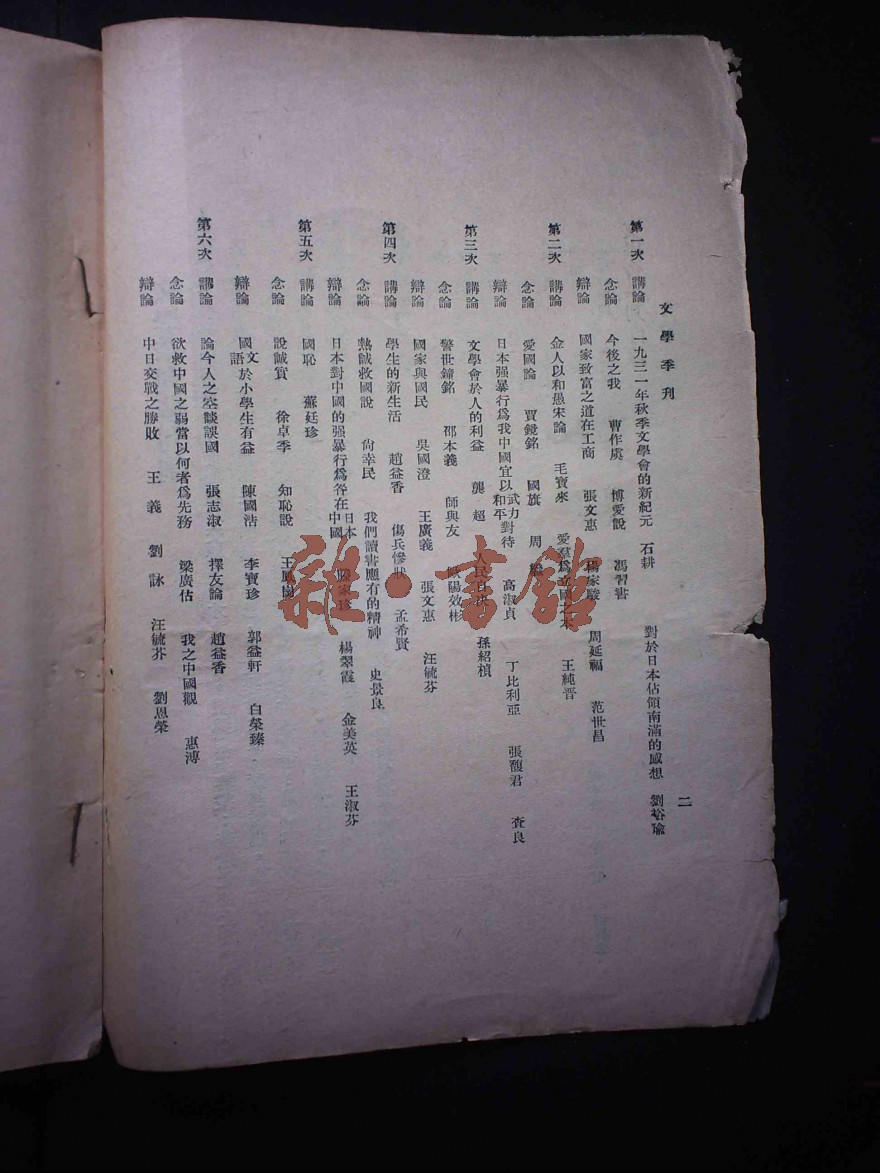 文學季刊
二
第一次 講論 一九三一年秋季文學會的新紀元 石耕 對於日本佔領南滿的感想 劉裕瑜
念論 今後之我 曹作虞 博愛說 馮習書
辯論 國家致富之道在工商 張文惠 楊家駿 周延福 范世昌
第二次 講論 金人以和愚宋論 毛寶來 愛羣為立國之本 王純晉
念論 愛國論 賈鏡銘 國旗 周
辯論 日本强暴行爲我中國宜以武力和平對待 高淑貞 丁比利亞 張馥君 査良
第三次 講論 文學會於人的利益 龔超 人民自決 孫紹楨
念論 警世鐘銘 邵本義 師與友 歐陽效彬
辯論 國家與國民 吳國澄 王廣義 張文惠 汪毓芬
第四次 講論 學生的新生活 趙益香 傷兵慘狀 孟希賢
念論 熱誠救國說 尙幸民 我們讀書應有的精神 史景良
辯論 日本對中國的强暴行爲咎在日本中國 滕家珍 楊翠霞 金美英 王淑芬
第五次 講論 國恥 蘇廷珍
念論 說誠實 徐卓季 知恥說 王鳳閣
辯論 國文國語於小學生有益 陳國洁 李寶珍 郭益軒 白榮臻
第六次 講論 論今人之空談誤國 張志淑 擇友論 趙益香
念論 欲救中國之弱當以何者爲先務 梁廣估 我之中國觀 惠溥
辯論 中日交戰之勝敗 王義 劉詠 汪毓芬 劉恩榮
雜·書館